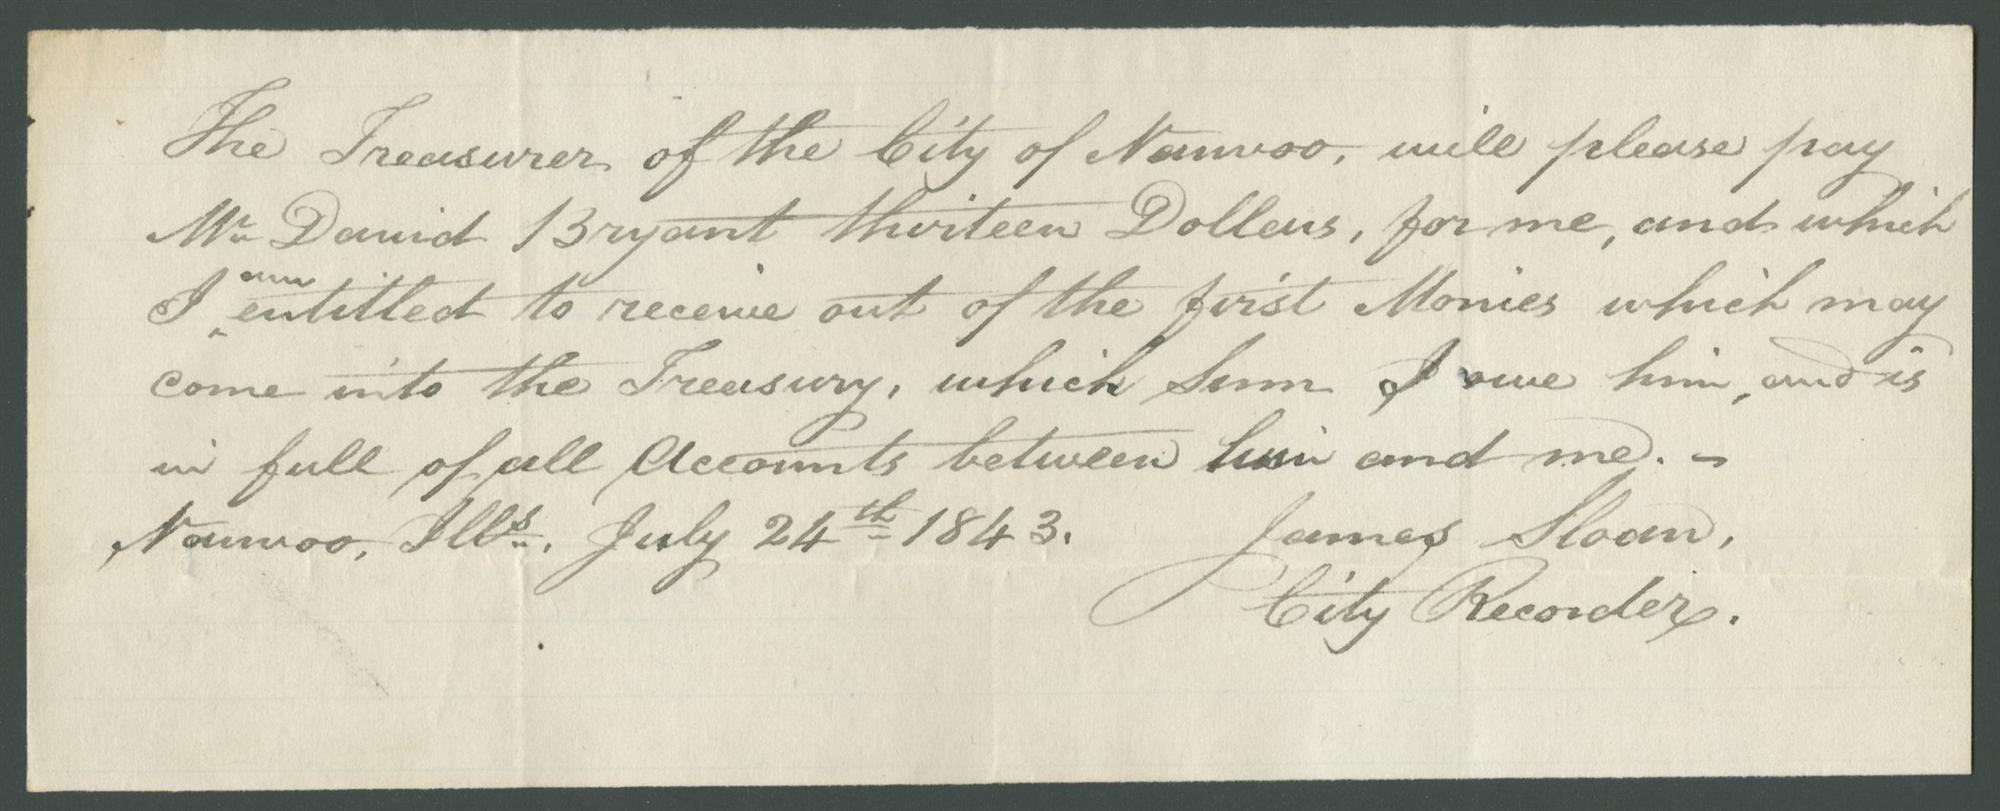 The Treasurer of the City of Nauvoo, will please pay
Mr David Bryant thirteen Dollars, for me, and which
I am entitled to receive out of the first Monies which may
come into the Treasury, which Sum I owe him, and is
in full of all Accounts between him and me. –
Nauvoo, Ills. July 24th 1843. James Sloan,
City Recorder.